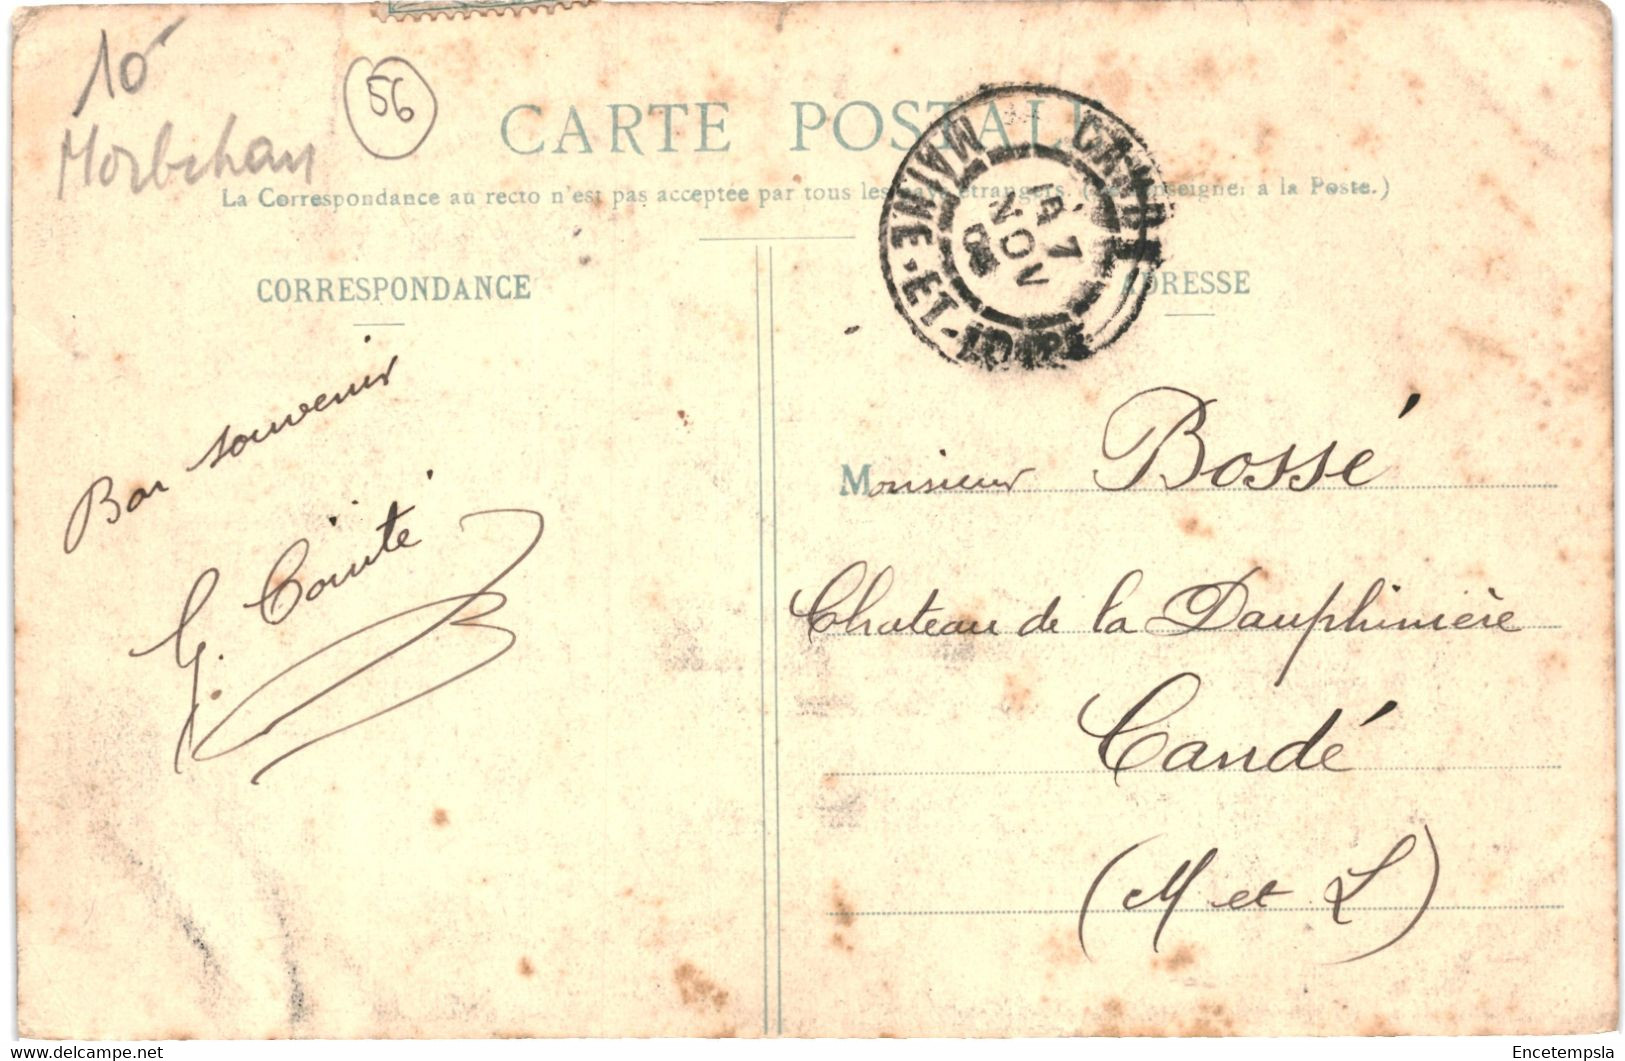 10
Morbihan
56
CARTE POSTALE
La Correspondance au recto n'est pas acceptée par tous les pays étrangers. (Se renseigner à la Poste.)
CORRESPONDANCE
ADRESSE
CANDÉ
MAINE-ET-LOIRE
7
NOV
Bon souvenir
G. Cointé
Monsieur Bossé
Chateau de la Dauphinière
Candé
(M et L)
Encetempsla